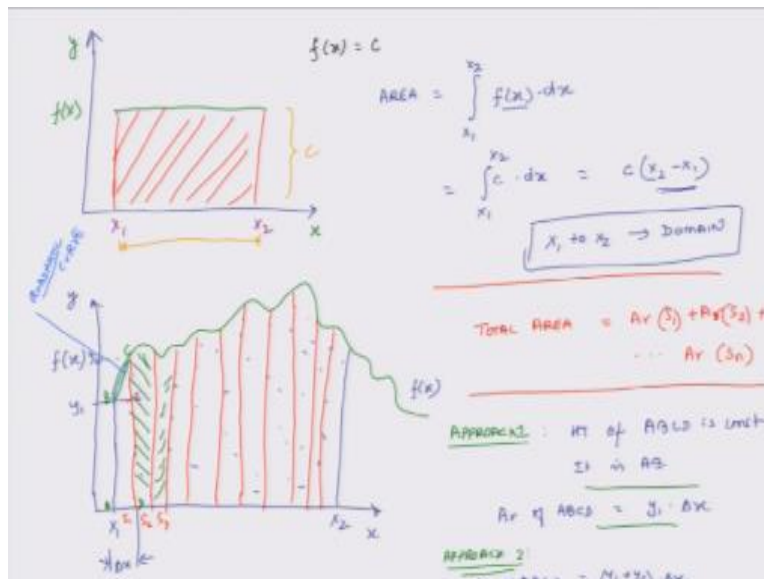 y
f(x) = c
f(x)
c
x₁
x₂
x
AREA = ∫ₓ₁ˣ² f(x)·dx
= ∫ₓ₁ˣ² c·dx = c(x₂-x₁)
x₁ to x₂ → DOMAIN
CURVE
y
f(x)
y₁
f(x)
x₁
S₁
S₂
S₃
x₂
x
Δx
TOTAL AREA = Ar (S₁) + Ar (S₂) +
... Ar (Sn)
APPROACH1 : HT of ABCD is const
It is AB
Ar of ABCD = y₁·Δx
APPROACH 2: